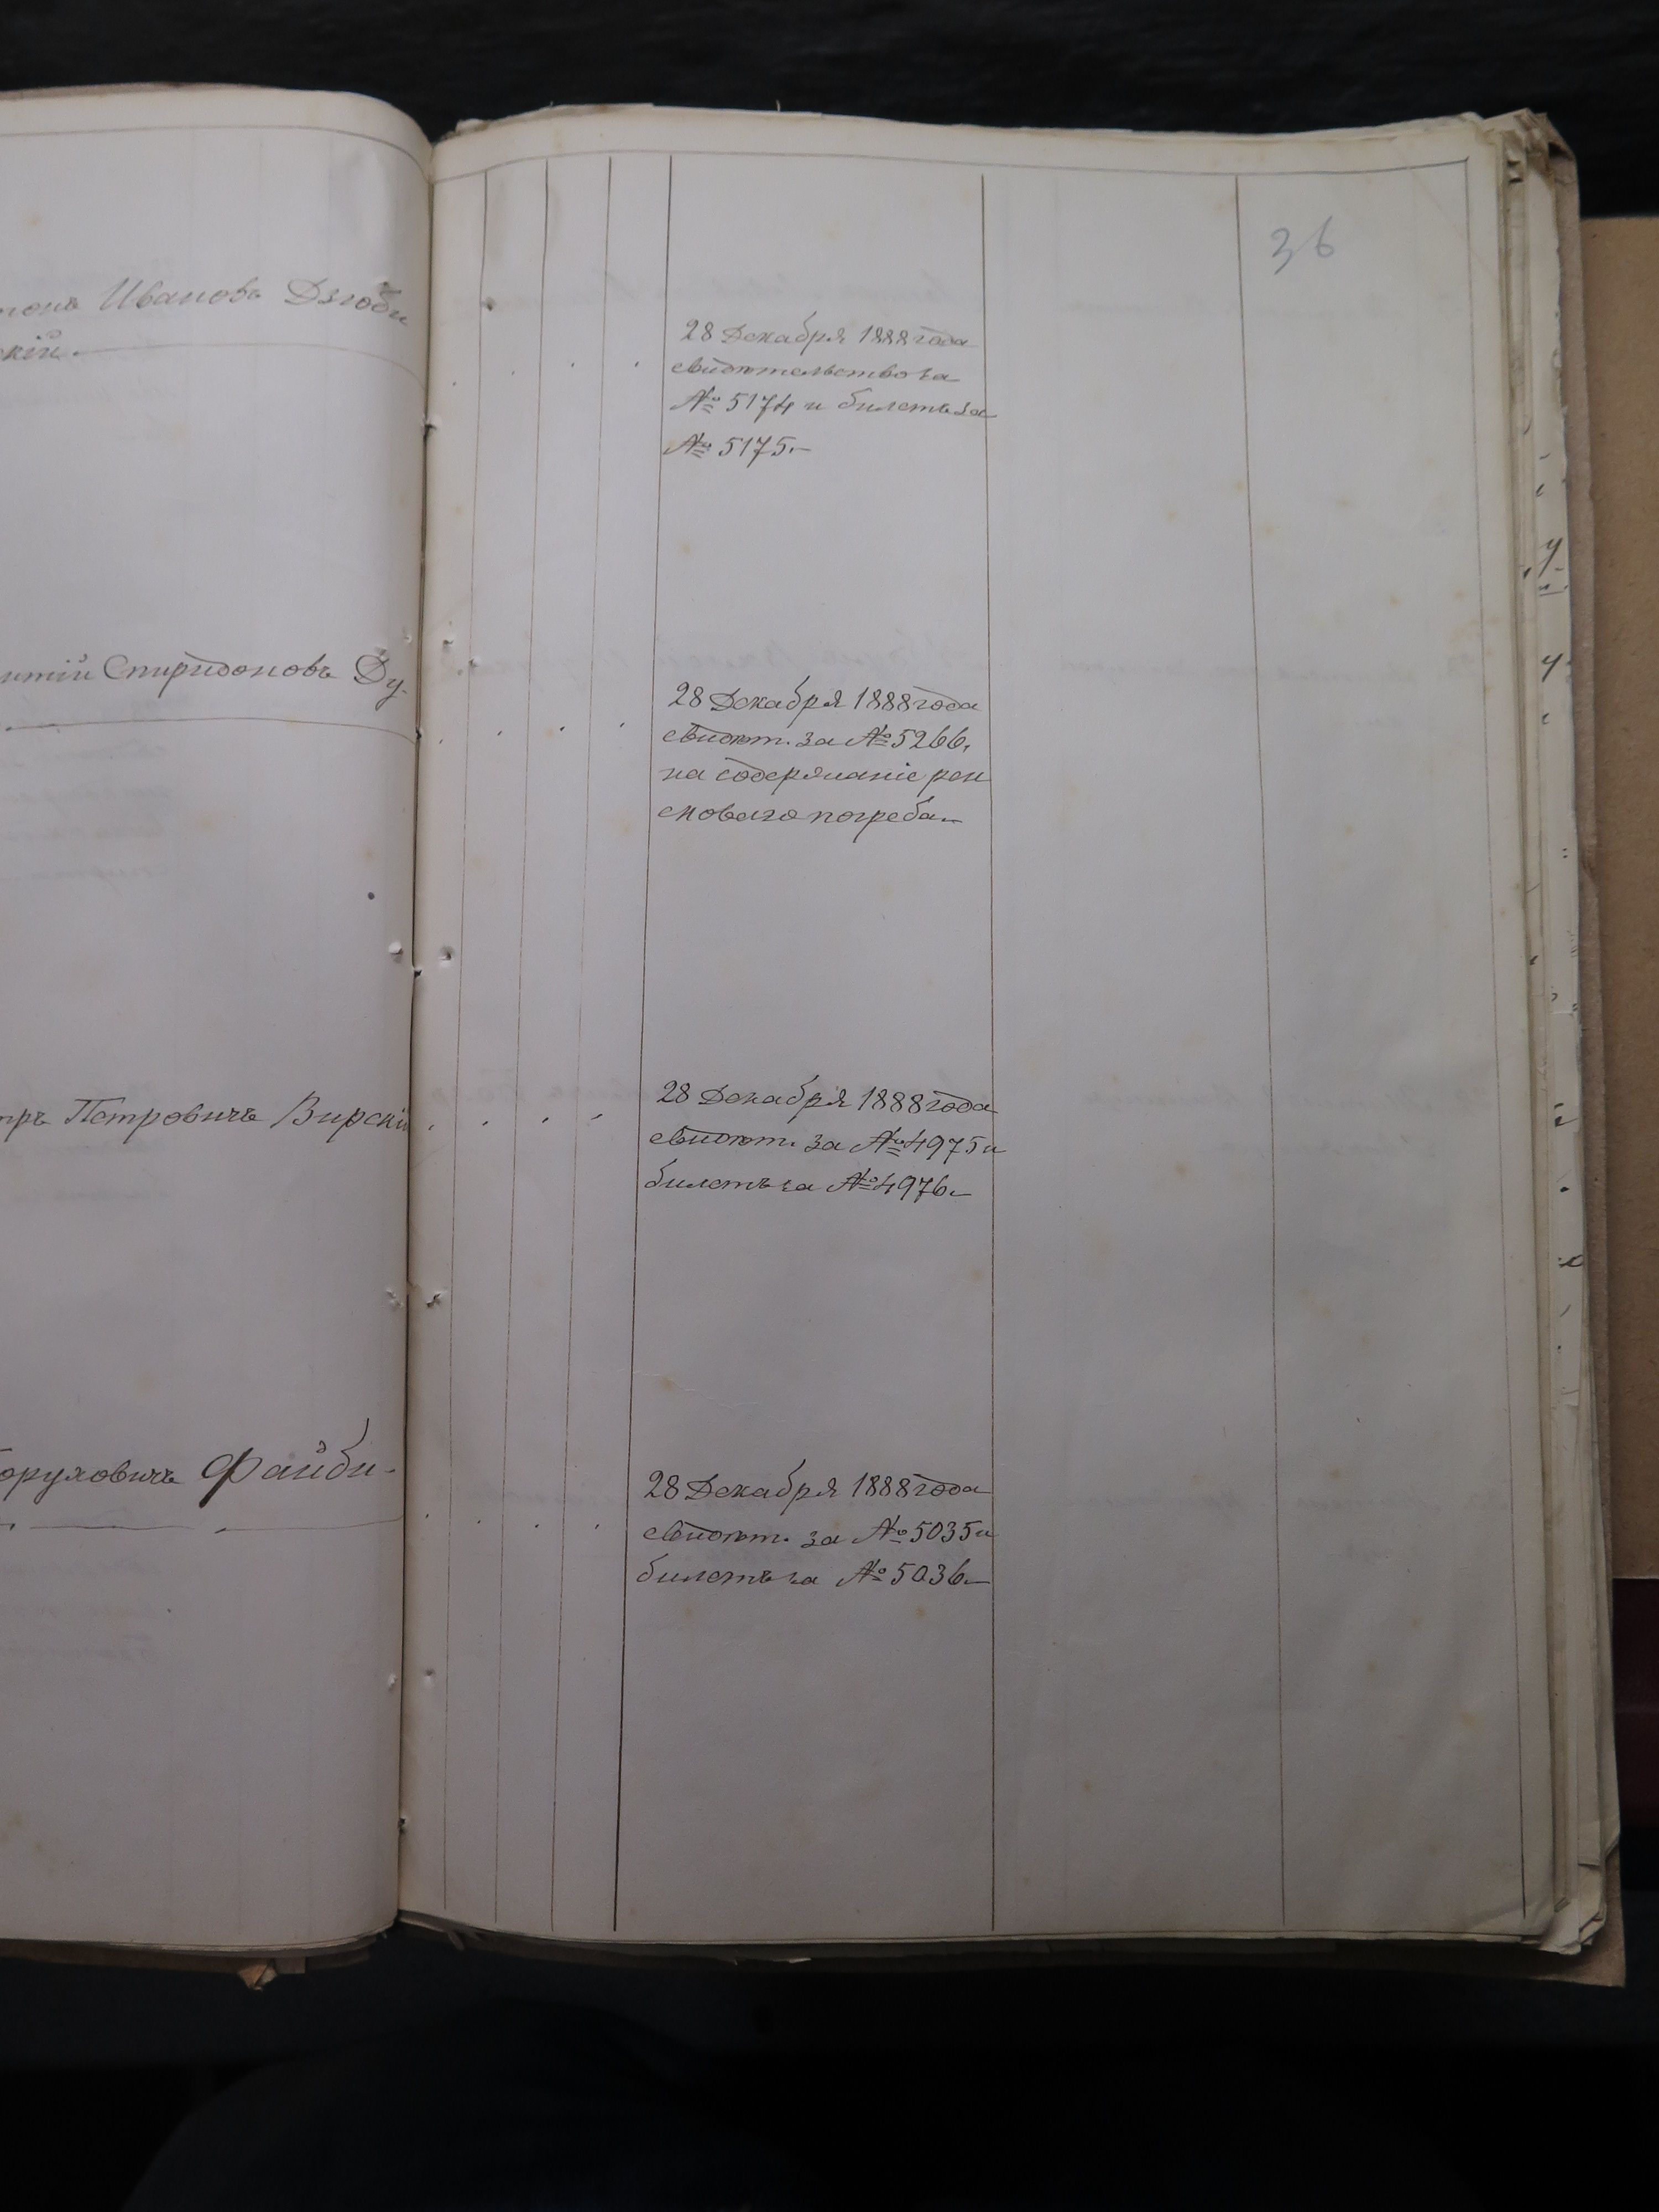 36
Ивановъ Дзюби
скій.
28 Декабря 1888 года
свидѣтельство за
№ 5174 и билетъ за
№ 5175.
Спиридоновъ Ду-
28 Декабря 1888 года
свидѣт. за № 5266.
на содержаніе рен
сковаго погреба.
тръ Петровичъ Вирскій
28 Декабря 1888 года
свидѣт. за № 4975 и
билетъ за № 4976.
Боруховичъ Файби-
28 Декабря 1888 года
свидѣт. за № 5035 и
билетъ за № 5036.